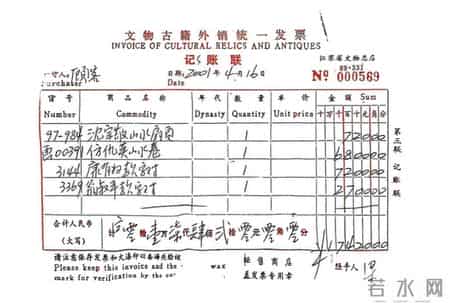 文物古籍外销统一发票
INVOICE OF CULTURAL RELICS AND ANTIQUES
记账联
江苏省文物总店
购买人: 顾客
Purchaser
日期: 2001年4月16日
Date
99-331
No 000569
货号 商品名称 年代 数量 单价 金额 Sum
Number Commodity Dynasty Quantity Unit price 十万千百十元角分
97-984 沈宗敬山水 1 72000
00391 仿仇英山水卷 1 680000
3144 康有为款字对 1 720000
3369 款字对 1 270000
第三联 记账联
合计人民币
(大写) 零拾壹万柒仟肆佰贰拾零元零角零分 ¥1742000
请注意保存发票和火漆印以备海关检验
Please keep this invoice and the wax
mark for verification by the
销售商店
盖发票专用章
经手人
若水网